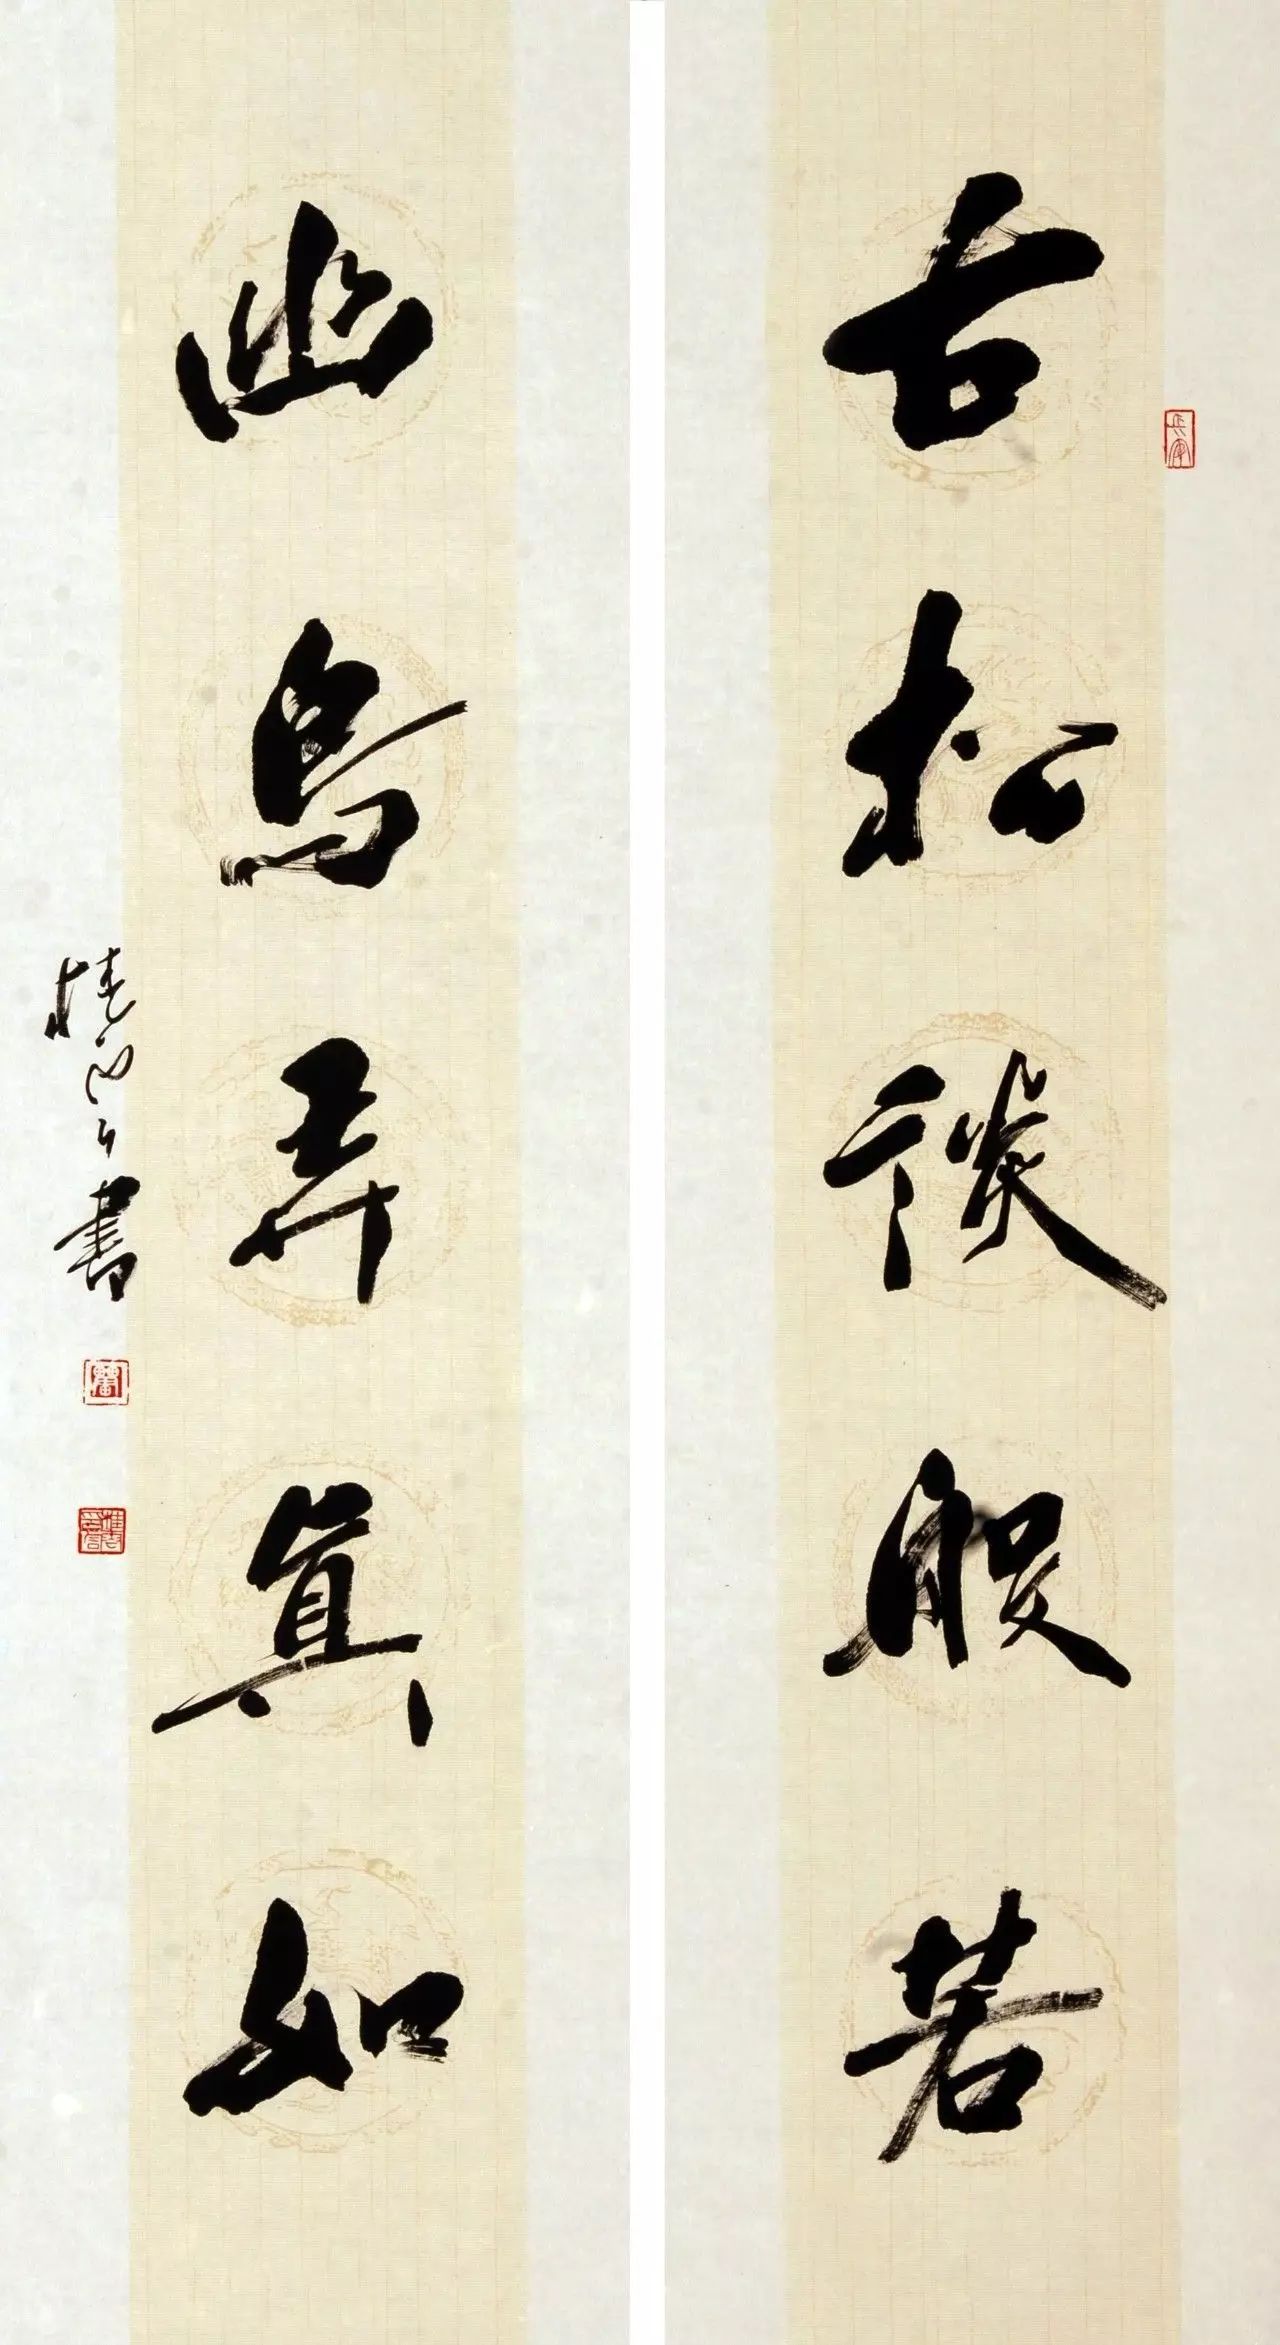 古松談般若
幽鳥弄真如
書